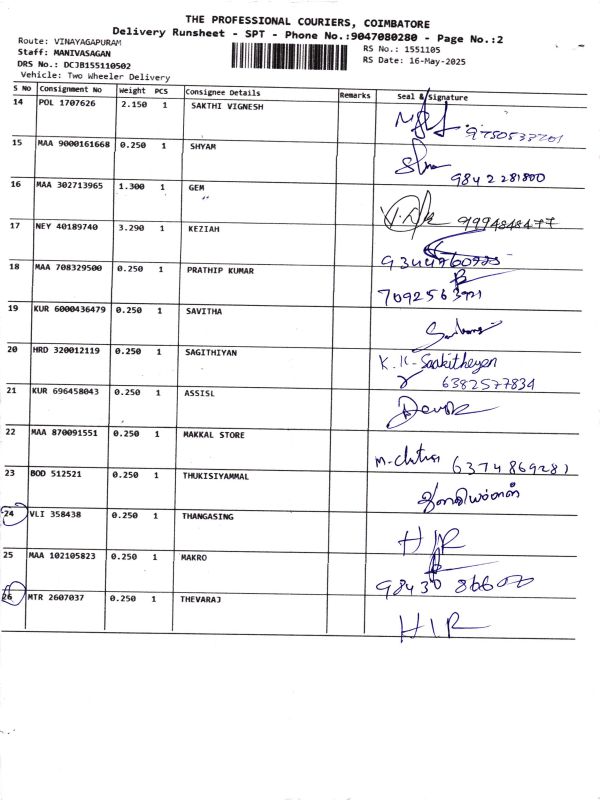 THE PROFESSIONAL COURIERS, COIMBATORE
Delivery Runsheet - SPT - Phone No.:9047080280 - Page No.:2
Route: VINAYAGAPURAM
Staff: MANIVASAGAN
DRS No.: DCJB155110502
Vehicle: Two Wheeler Delivery
RS No.: 1551105
RS Date: 16-May-2025
S No Consignment No Weight PCS Consignee Details Remarks Seal & Signature
14 POL 1707626 2.150 1 SAKTHI VIGNESH
15 MAA 9000161668 0.250 1 SHYAM 9842281800
16 MAA 302713965 1.300 1 GEM 9994848477
17 NEY 40189740 3.290 1 KEZIAH
18 MAA 708329500 0.250 1 PRATHIP KUMAR 7092563921
19 KUR 6000436479 0.250 1 SAVITHA
20 HRD 320012119 0.250 1 SAGITHIYAN K.K-Saakitheyen
6382577834
21 KUR 696458043 0.250 1 ASSISL
22 MAA 870091551 0.250 1 MAKKAL STORE 6374869281
23 BOD 512521 0.250 1 THUKISIYAMMAL
24 VLI 358438 0.250 1 THANGASING HIR
25 MAA 102105823 0.250 1 MAKRO
26 MTR 2607037 0.250 1 THEVARAJ HIR